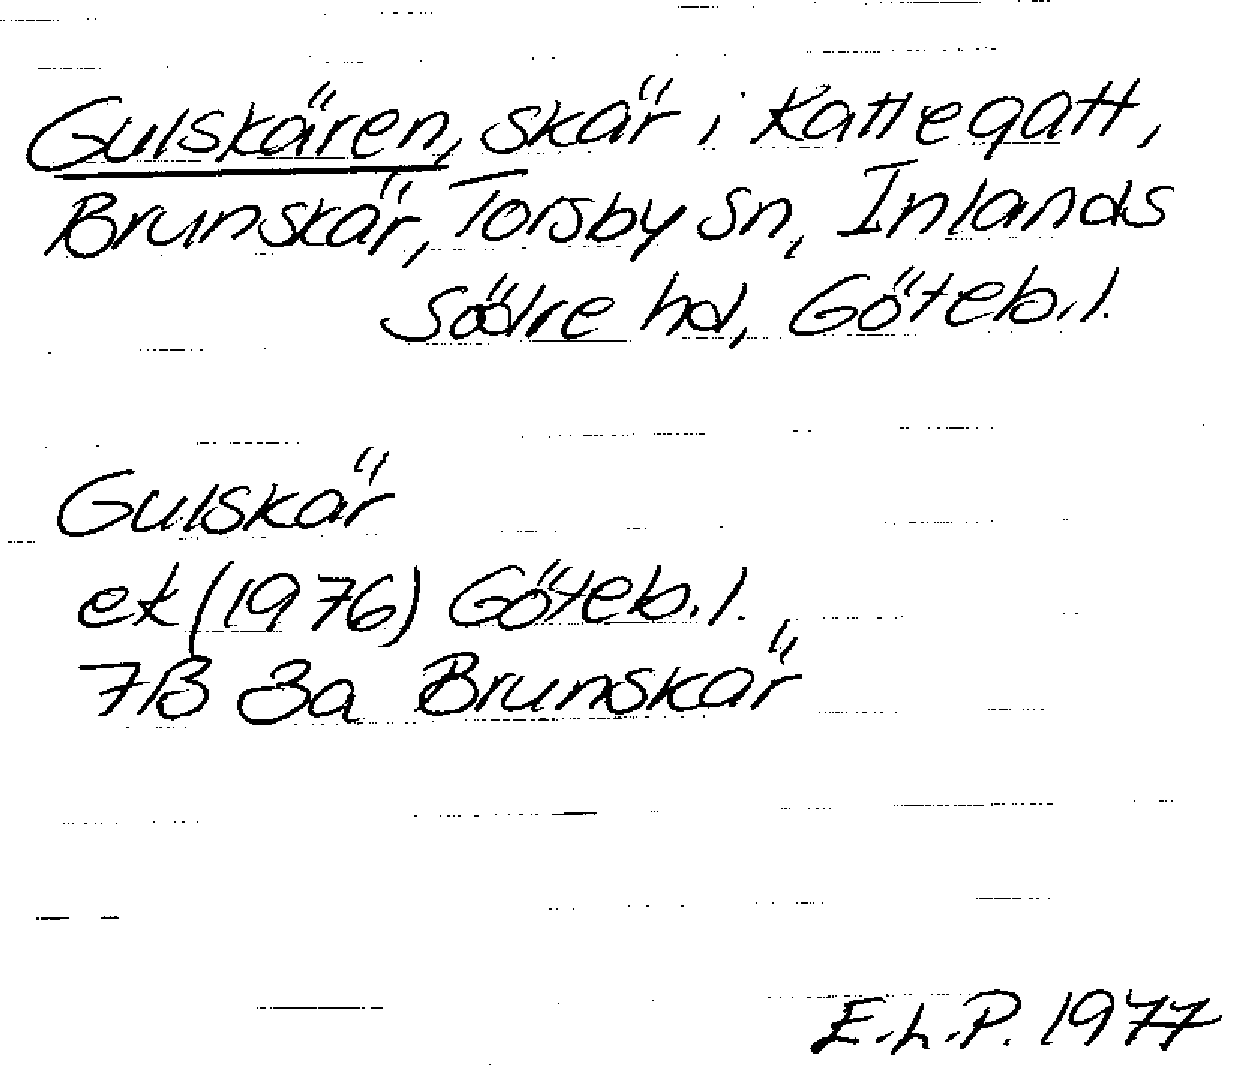 Gulskären, skär i Kattegatt,
Brunskär, Torsby sn, Inlands
Södre hd, Göteb.l.
Gulskär
ek (1976) Göteb.l.
7B 3a Brunskär
E.L.P. 1977